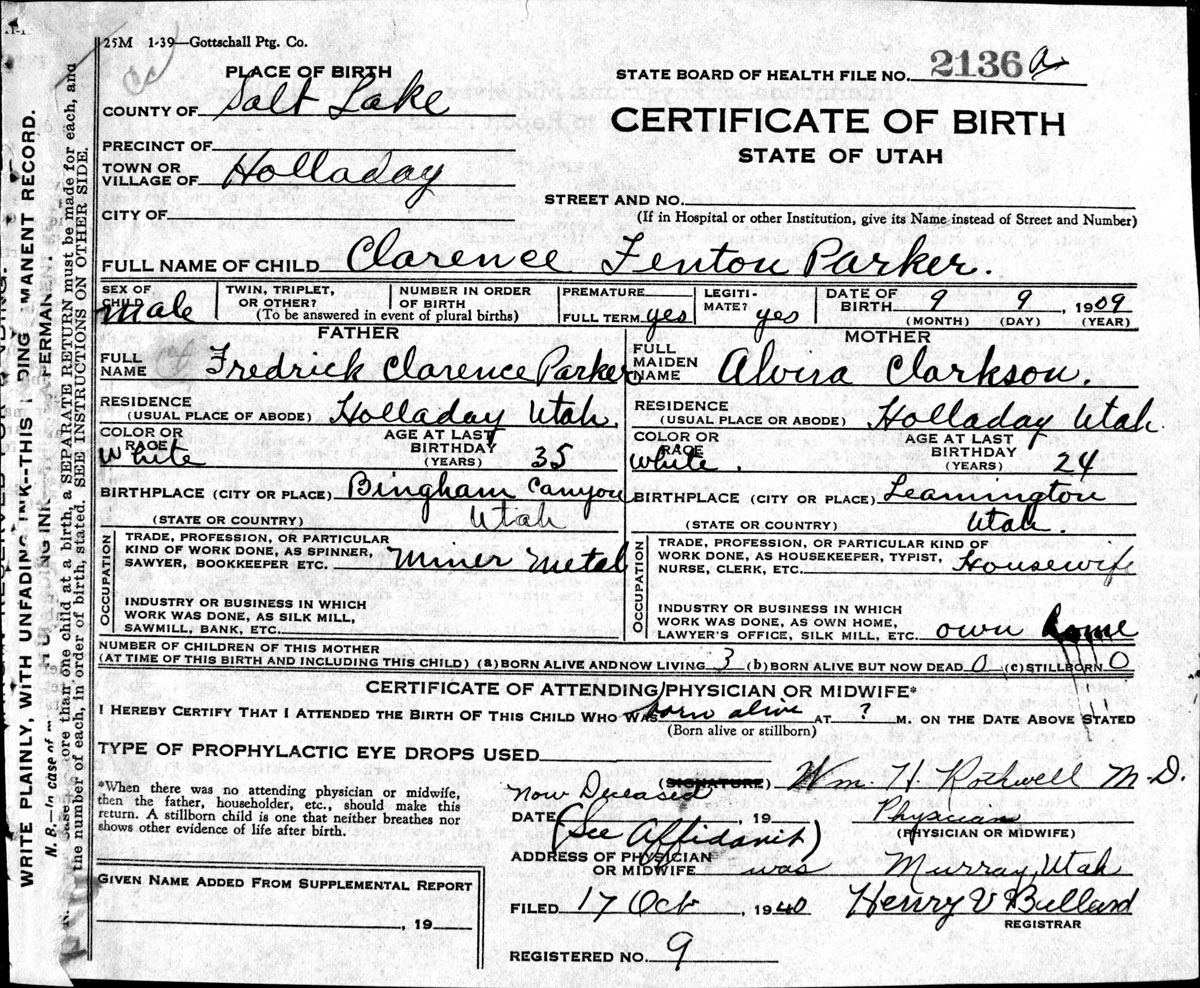 25M 1-39—Gottschall Ptg. Co.
STATE BOARD OF HEALTH FILE NO. 2136 a
PLACE OF BIRTH
COUNTY OF Salt Lake
PRECINCT OF
TOWN OR VILLAGE OF Holladay
CITY OF
CERTIFICATE OF BIRTH
STATE OF UTAH
STREET AND NO.
(If in Hospital or other Institution, give its Name instead of Street and Number)
FULL NAME OF CHILD Clarence Fenton Parker.
SEX OF CHILD Male
TWIN, TRIPLET, OR OTHER?
NUMBER IN ORDER OF BIRTH
(To be answered in event of plural births)
PREMATURE
FULL TERM yes
LEGITI-MATE? yes
DATE OF BIRTH 9 9, 1909
(MONTH) (DAY) (YEAR)
FATHER
FULL NAME Fredrick Clarence Parker
RESIDENCE (USUAL PLACE OF ABODE) Holladay Utah.
COLOR OR RACE White
AGE AT LAST BIRTHDAY (YEARS) 35
BIRTHPLACE (CITY OR PLACE) Bingham Canyon
(STATE OR COUNTRY) Utah
OCCUPATION
TRADE, PROFESSION, OR PARTICULAR
KIND OF WORK DONE, AS SPINNER,
SAWYER, BOOKKEEPER ETC. Miner Metal
INDUSTRY OR BUSINESS IN WHICH
WORK WAS DONE, AS SILK MILL,
SAWMILL, BANK, ETC.
MOTHER
FULL MAIDEN NAME Alvira Clarkson.
RESIDENCE (USUAL PLACE OF ABODE) Holladay Utah.
COLOR OR RACE White.
AGE AT LAST BIRTHDAY (YEARS) 24
BIRTHPLACE (CITY OR PLACE) Leamington
(STATE OR COUNTRY) Utah.
OCCUPATION
TRADE, PROFESSION, OR PARTICULAR KIND OF
WORK DONE, AS HOUSEKEEPER, TYPIST,
NURSE, CLERK, ETC. Housewife
INDUSTRY OR BUSINESS IN WHICH
WORK WAS DONE, AS OWN HOME,
LAWYER'S OFFICE, SILK MILL, ETC. own home
NUMBER OF CHILDREN OF THIS MOTHER
(AT TIME OF THIS BIRTH AND INCLUDING THIS CHILD) (a) BORN ALIVE AND NOW LIVING 3 (b) BORN ALIVE BUT NOW DEAD 0 (c) STILLBORN 0
CERTIFICATE OF ATTENDING PHYSICIAN OR MIDWIFE*
I HEREBY CERTIFY THAT I ATTENDED THE BIRTH OF THIS CHILD WHO WAS born alive AT ? M. ON THE DATE ABOVE STATED
(Born alive or stillborn)
TYPE OF PROPHYLACTIC EYE DROPS USED
*When there was no attending physician or midwife,
then the father, householder, etc., should make this
return. A stillborn child is one that neither breathes nor
shows other evidence of life after birth.
GIVEN NAME ADDED FROM SUPPLEMENTAL REPORT
, 19
Now Deceased (SIGNATURE) Wm. H. Rothwell M-D.
DATE , 19 Physician
(See Affidavit) (PHYSICIAN OR MIDWIFE)
ADDRESS OF PHYSICIAN OR MIDWIFE was Murray, Utah
FILED 17 Oct, 1940 Henry V Bullard
REGISTRAR
REGISTERED NO. 9
the number of each, in order of birth, stated. SEE INSTRUCTIONS ON OTHER SIDE.
one child at a birth, a SEPARATE RETURN must be made for each, and
N. B.—In case of
WRITE PLAINLY, WITH UNFADING INK—THIS MANENT RECORD.